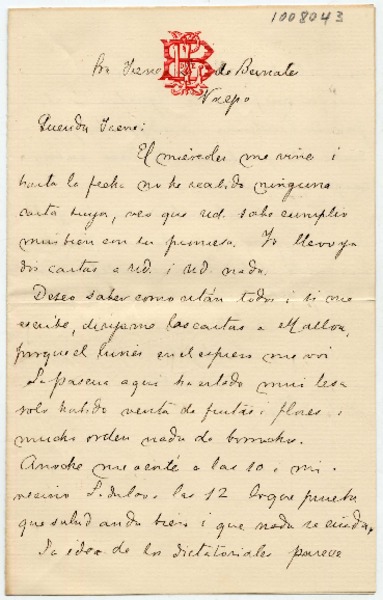 1008043
Sra Irene de Bernales
Valpo
Querida Irene:
El miércoles me vine i
hasta la fecha no he recibido ninguna
carta suya, veo que Ud. sabe cumplir
mui bien con su promesa. Yo llevo ya
dos cartas a Ud. i Ud. nada.
Deseo saber como están todos i si me
escribe, dirijame las cartas a
porque el lunes en el espreso me voi
La pascua aquí ha estado mui lesa
solo habido venta de frutas i flores i
mucho orden nada de borrachos.
Anoche me acosté a las 10 i mi
vecino a las 12 lo que prueba
que salud anda bien i que nada se cuida.
La idea de los dictatoriales parece